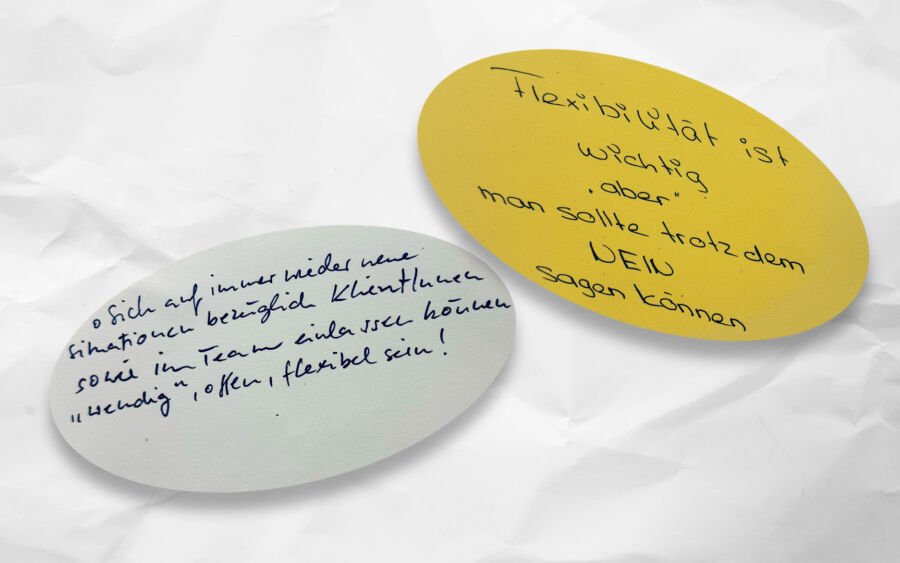 Flexibilität ist
wichtig
"aber"
man sollte trotzdem
NEIN
sagen können
o Sich auf immer wieder neue
Situationen bezüglich KlientInnen
sowie im Team einlassen können
„wendig“, offen, flexibel sein!